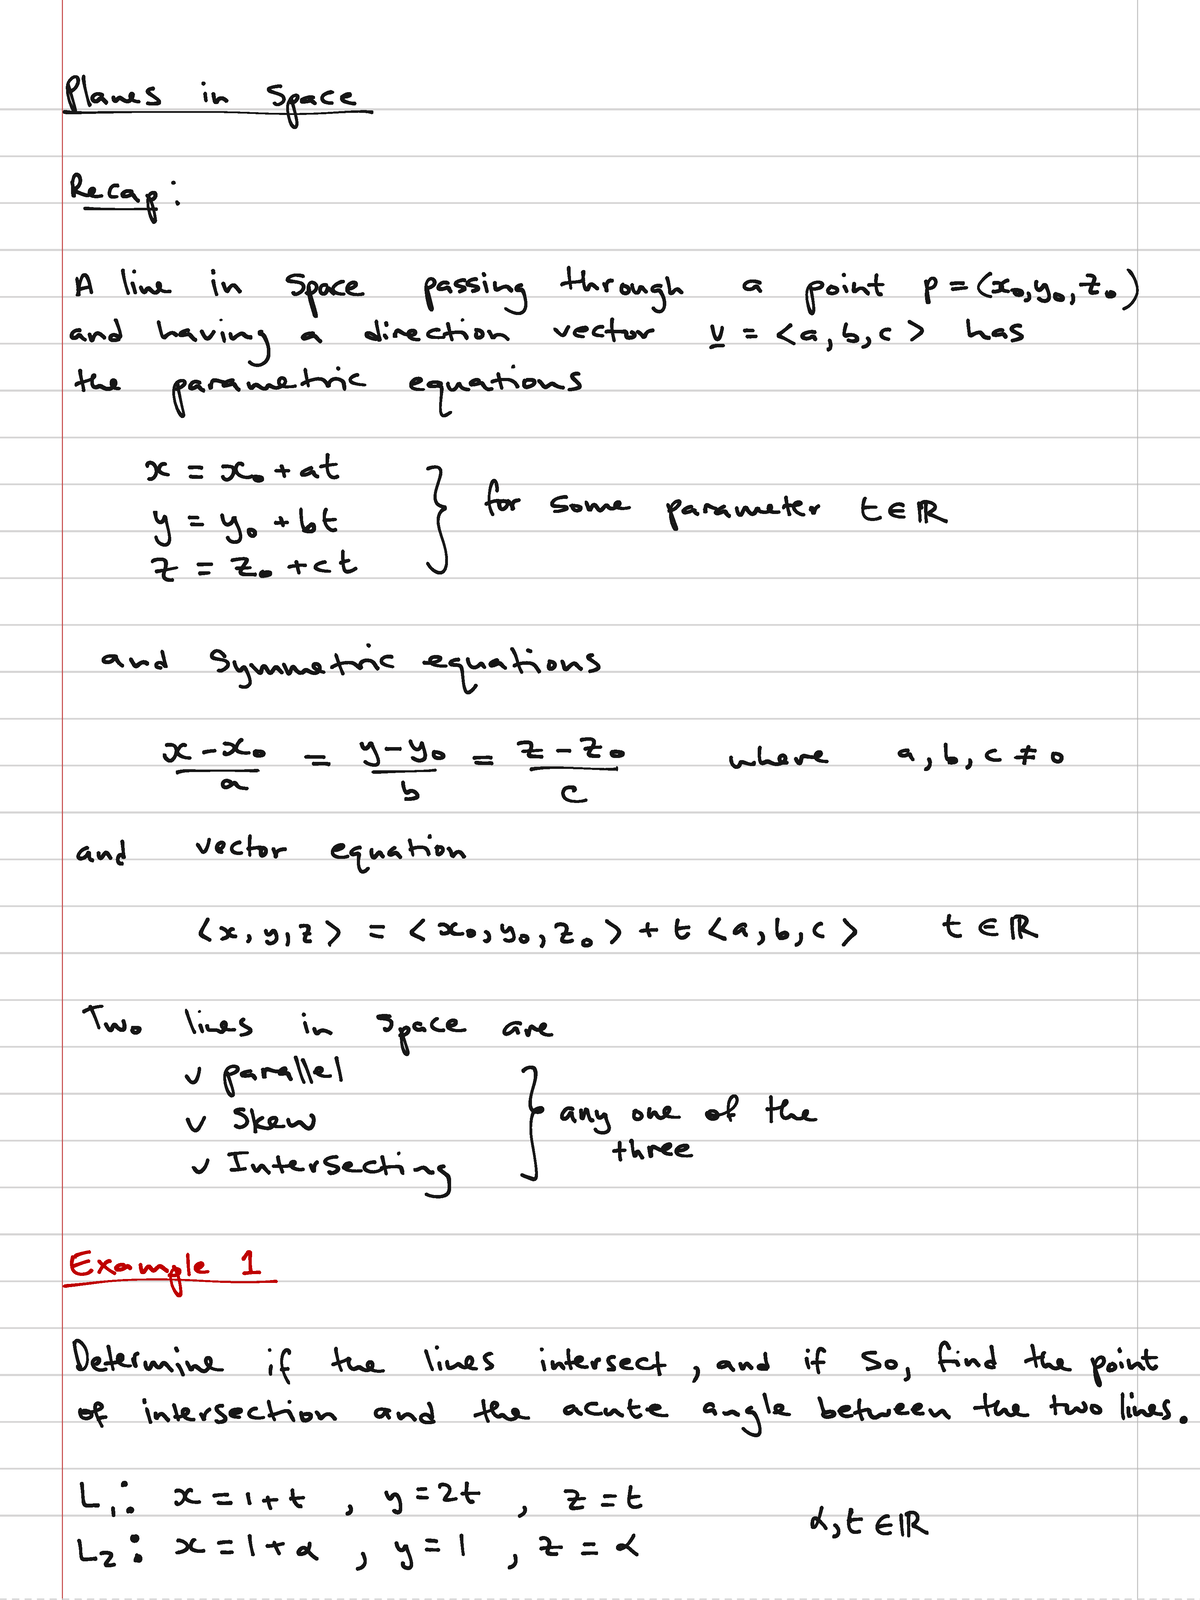 Planes in Space
Recap:
A line in space passing through a point p = (x₀, y₀, z₀)
and having a direction vector v = <a, b, c> has
the parametric equations
x = x₀ + at
y = y₀ + bt
z = z₀ + ct
} for some parameter t ∈ ℝ
and symmetric equations
(x - x₀)/a = (y - y₀)/b = (z - z₀)/c where a, b, c ≠ 0
and vector equation
<x, y, z> = <x₀, y₀, z₀> + t <a, b, c> t ∈ ℝ
Two lines in space are
✓ parallel
✓ Skew
✓ Intersecting
} any one of the
three
Example 1
Determine if the lines intersect, and if so, find the point
of intersection and the acute angle between the two lines.
L₁: x = 1 + t, y = 2t, z = t
L₂: x = 1 + α, y = 1, z = α
α, t ∈ ℝ